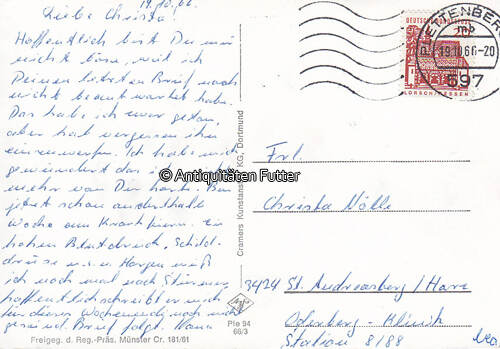 19.10.66.
Liebe Christa!
Hoffentlich bist Du mir
nicht böse, weil ich
Deinen letzten Brief noch
nicht beantwortet habe.
Das habe ich zwar getan,
aber hab vergessen ihn
einzuwerfen. Ich habe mich
gewundert das ich nichts
mehr von Dir hörte. Bin
jetzt schon anderthalb
Woche am Krankfeiern. Ein
hohen Blutdruck, Schild-
drüse u.s.w. Morgen muß
ich noch mal nach
hoffentlich schreibt er mich
für diese Woche noch nicht
gesund. Brief folgt.
Freigeg. d. Reg.-Präs. Münster Cr. 181/61
Cramers Kunstanstalt KG, Dortmund
Ple 94
66/3
© Antiquitäten Futter
DEUTSCHE BUNDESPOST
LORSCH/HESSEN
PLETTENBERG
19.10.66-20
597
Frl.
Christa Nölle
3424 St. Andreasberg/Harz
Oderberg-Klinik
Station 8/188